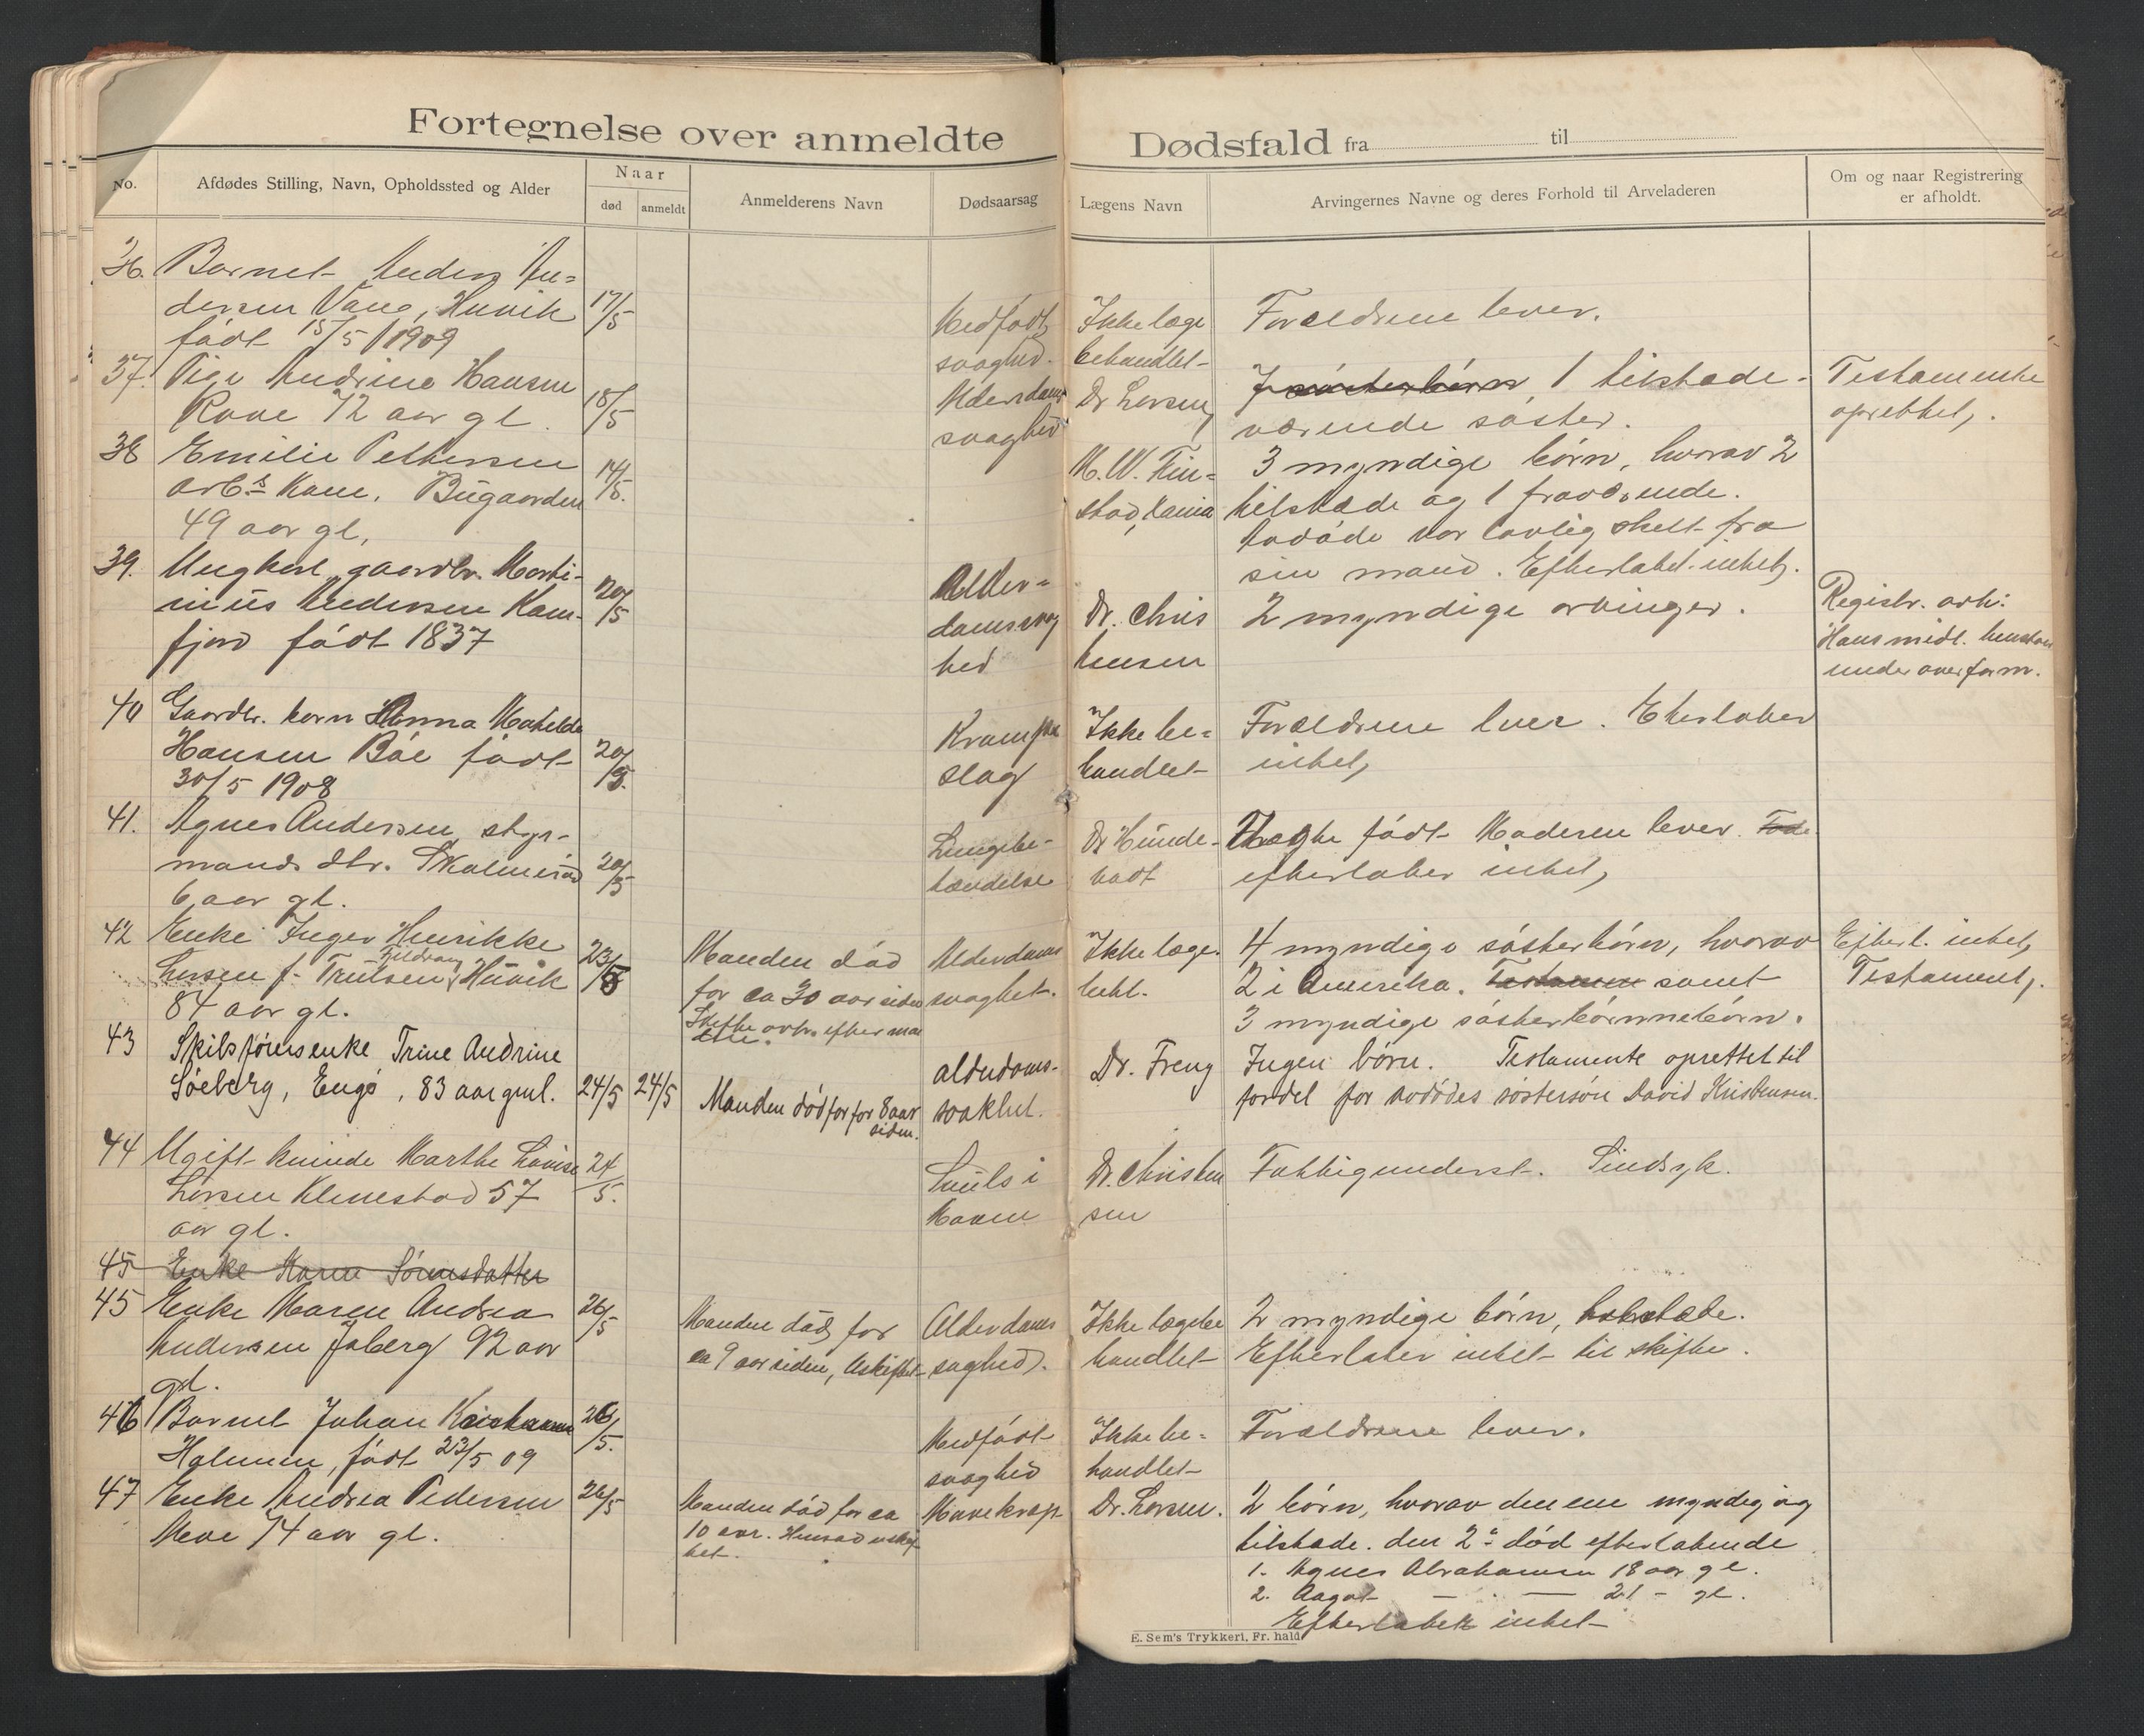 Fortegnelse over anmeldte Dødsfald fra til
No.
Afdødes Stilling, Navn, Opholdssted og Alder
Naar
død
anmeldt
Anmelderens Navn
Dødsaarsag
Lægens Navn
Arvingernes Navne og deres Forhold til Arveladeren
Om og naar Registrering
er afholdt.
36. Barnet Anders An=
dersen Vang, Husvik
født 15/5 1909
17/5
Medfødt
svaghed.
Ikke læge
behandlet
Forældrene lever.
37. Pige Andrine Hansen
Rove 72 aar gl.
18/5
Alderdoms
svaghed
Dr Larsen
7 søsterbørn 1 tilstede-
værende søster.
Testamente
oprettet.
38 Emilie Pettersen
arb.s kone, Bugaarden
49 aar gl.
14/5.
M. W.
3 myndige børn, hvorav 2
tilstede og 1 fraværende.
Avdøde var lovlig skilt fra
sin mand. Efterlatt intet.
39. Ungkarl, gaardbr. Marti-
nius Andersen Kam-
fjord født 1837
20/5
Alder=
domssvag
hed
Dr. Chris
tensen
2 myndige arvinger.
Registr. avh:
Hans midl. henstaar
under overform.
40 Gaardbr. barn Hanna Mathilde
Hansen Bøe født
30/5 1908
20/5.
Krampe
slag
Ikke be=
handlet
Forældrene lever. Efterlater
intet,
41. Agnes Andersen, styr-
mands dtr.
6 aar gl.
20/5
Lungebe-
tændelse
Dr Hunde-
vadt
Uægte født Moderen lever.
efterlater intet,
42 Enke Inger Henrikke
Larsen f. Trulsen, Husvik
84 aar gl.
23/5
Manden død
for ca 30 aar siden
Skifte avh. efter ma
Alderdoms
svaghet.
Ikke læge.
beh.
4 myndige søsterbørn, hvorav
2 i Amerika. Testamen samt
3 myndige søsterbørnnebørn.
Efterl. intet,
Testament,
43 Skibsførersenke Trine Andrine
Søeberg, Engø, 83 aar gml.
24/5 24/5
Manden død for for 8 aar
siden.
alderdoms-
svakhet.
Dr. Freng
Ingen børn. Testamente oprettet til
fordel for avdødes søstersøn David Kristensen.
44 Ugift kvinde Marthe Lovise
Larsen Klinestad 57
aar gl.
24/5.
i
Maven
Dr. Christen
sen
Fattigunderst. Sindsyk.
45 Enke Karen Sørensdatter
45 Enke Maren Andrea
Andersen Jaberg 92 aar
gl.
26/5
Manden død for
ca 9 aar siden, Uskiftet
Alderdoms
svaghed.
Ikke lægebe
handlet
2 myndige børn, tilstede.
Efterlater intet til skifte.
46 Barnet Johan Kristian
Holmen, født 23/5 09
26/5.
Medfødt
svaghed
Ikke be-
handlet
Forældrene lever.
47 Enke Andrea Pedersen
Moe 74 aar gl.
26/5
Manden død for ca
10 aar. Hensad uskif
tet.
Mavekræft
Dr. Larsen.
2 børn, hvorav den ene myndig og
tilstede. den 2. død efterlatende
1. Agnes Abrahamsen 18 aar gl.
2. Aagot — — 21 - gl.
Efterlater intet
E. Sem's Trykkeri, Fr. hald